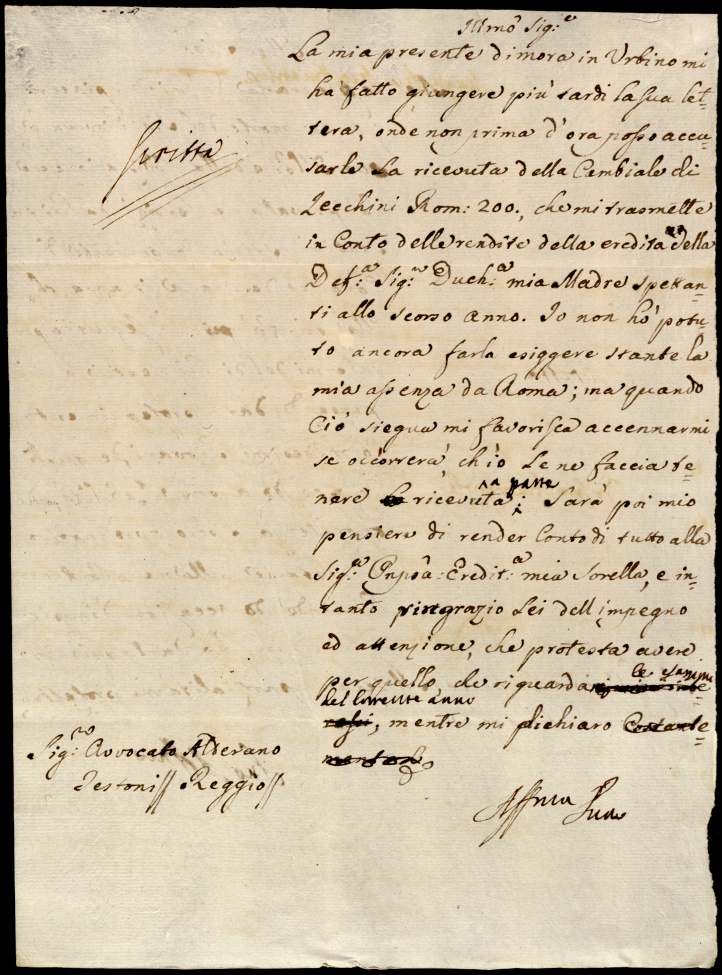 Illmo Sig.e
La mia presente dimora in Urbino mi
hà fatto giungere più tardi la sua let=
tera, onde non prima d'ora posso accu=
sarle la ricevuta della Cambiale di
Zecchini Rom: 200., che mi trasmette
in Conto delle rendite della eredità della
Def:a Sig:ra Duch:a mia Madre spettan=
ti allo scorso anno. Io non hò potu=
to ancora farla esiggere stante la
mia assenza da Roma; ma quando
Ciò siegua mi favorisca accennarmi
se occorrerà, ch'io Le ne faccia te=
nere ricevuta a parte; Sarà poi mio
pensiere di render Conto di tutto alla
Sig:ra Pnpssa: Eredit:a mia Sorella, e in=
tanto ringrazio Lei dell'impegno
ed attenzione, che protesta avere
per quello, che riguarda le
del Corrente anno
, mentre mi dichiaro Costante=
Scritta
Sig:r Avvocato Alderano
Testoni // Reggio //
Affma Sua